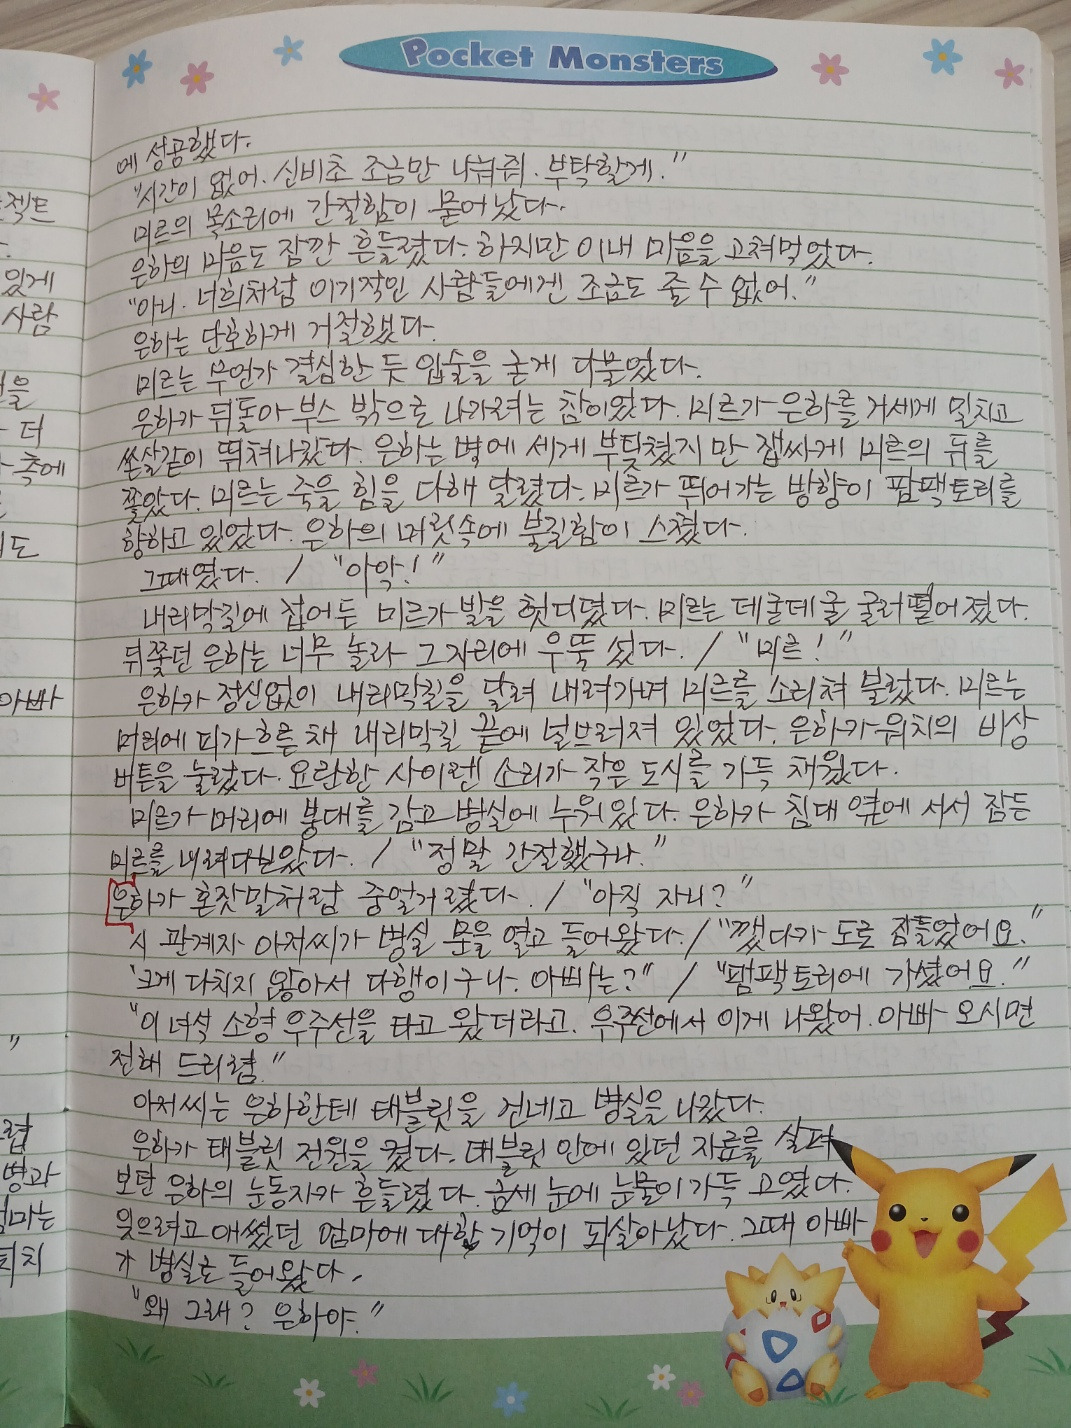 Pocket Monsters
에 성공했다.
"시간이 없어. 신비초 조금만 나눠줘. 부탁할게."
미르의 목소리에 간절함이 묻어났다.
은하의 마음도 잠깐 흔들렸다. 하지만 이내 마음을 고쳐먹었다.
"아니. 너희처럼 이기적인 사람들에겐 조금도 줄 수 없어."
은하는 단호하게 거절했다.
미르는 무언가 결심한 듯 입술을 굳게 다물었다.
은하가 뒤돌아 부스 밖으로 나가려는 참이었다. 미르가 은하를 거세게 밀치고
쏜살같이 뛰쳐나갔다. 은하는 벽에 세게 부딪쳤지만 잽싸게 미르의 뒤를
쫓았다. 미르는 죽을 힘을 다해 달렸다. 미르가 뛰어가는 방향이 팜팩토리를
향하고 있었다. 은하의 머릿속에 불길함이 스쳤다.
그때였다. / "아악!"
내리막길에 접어든 미르가 발을 헛디뎠다. 미르는 데굴데굴 굴러떨어졌다.
뒤쫓던 은하는 너무 놀라 그 자리에 우뚝 섰다. / "미르!"
은하가 정신없이 내리막길을 달려 내려가며 미르를 소리쳐 불렀다. 미르는
머리에 피가 흐른 채 내리막길 끝에 널브러져 있었다. 은하가 워치의 비상
버튼을 눌렀다. 요란한 사이렌 소리가 작은 도시를 가득 채웠다.
미르가 머리에 붕대를 감고 병실에 누워있다. 은하가 침대 옆에 서서 잠든
미르를 내려다보았다. / "정말 간절했구나."
은하가 혼잣말처럼 중얼거렸다. / "아직 자니?"
시 관계자 아저씨가 병실 문을 열고 들어왔다. / "깼다가 도로 잠들었어요."
"크게 다치지 않아서 다행이구나. 아빠는?" / "팜팩토리에 가셨어요."
"이 녀석 소형 우주선을 타고 왔더라고. 우주선에서 이게 나왔어. 아빠 오시면
전해 드리렴."
아저씨는 은하한테 태블릿을 건네고 병실을 나갔다.
은하가 태블릿 전원을 켰다. 태블릿 안에 있던 자료를 살펴
보던 은하의 눈동자가 흔들렸다. 금세 눈에 눈물이 가득 고였다.
잊으려고 애썼던 엄마에 대한 기억이 되살아났다. 그때 아빠
가 병실로 들어왔다.
"왜 그래? 은하야."